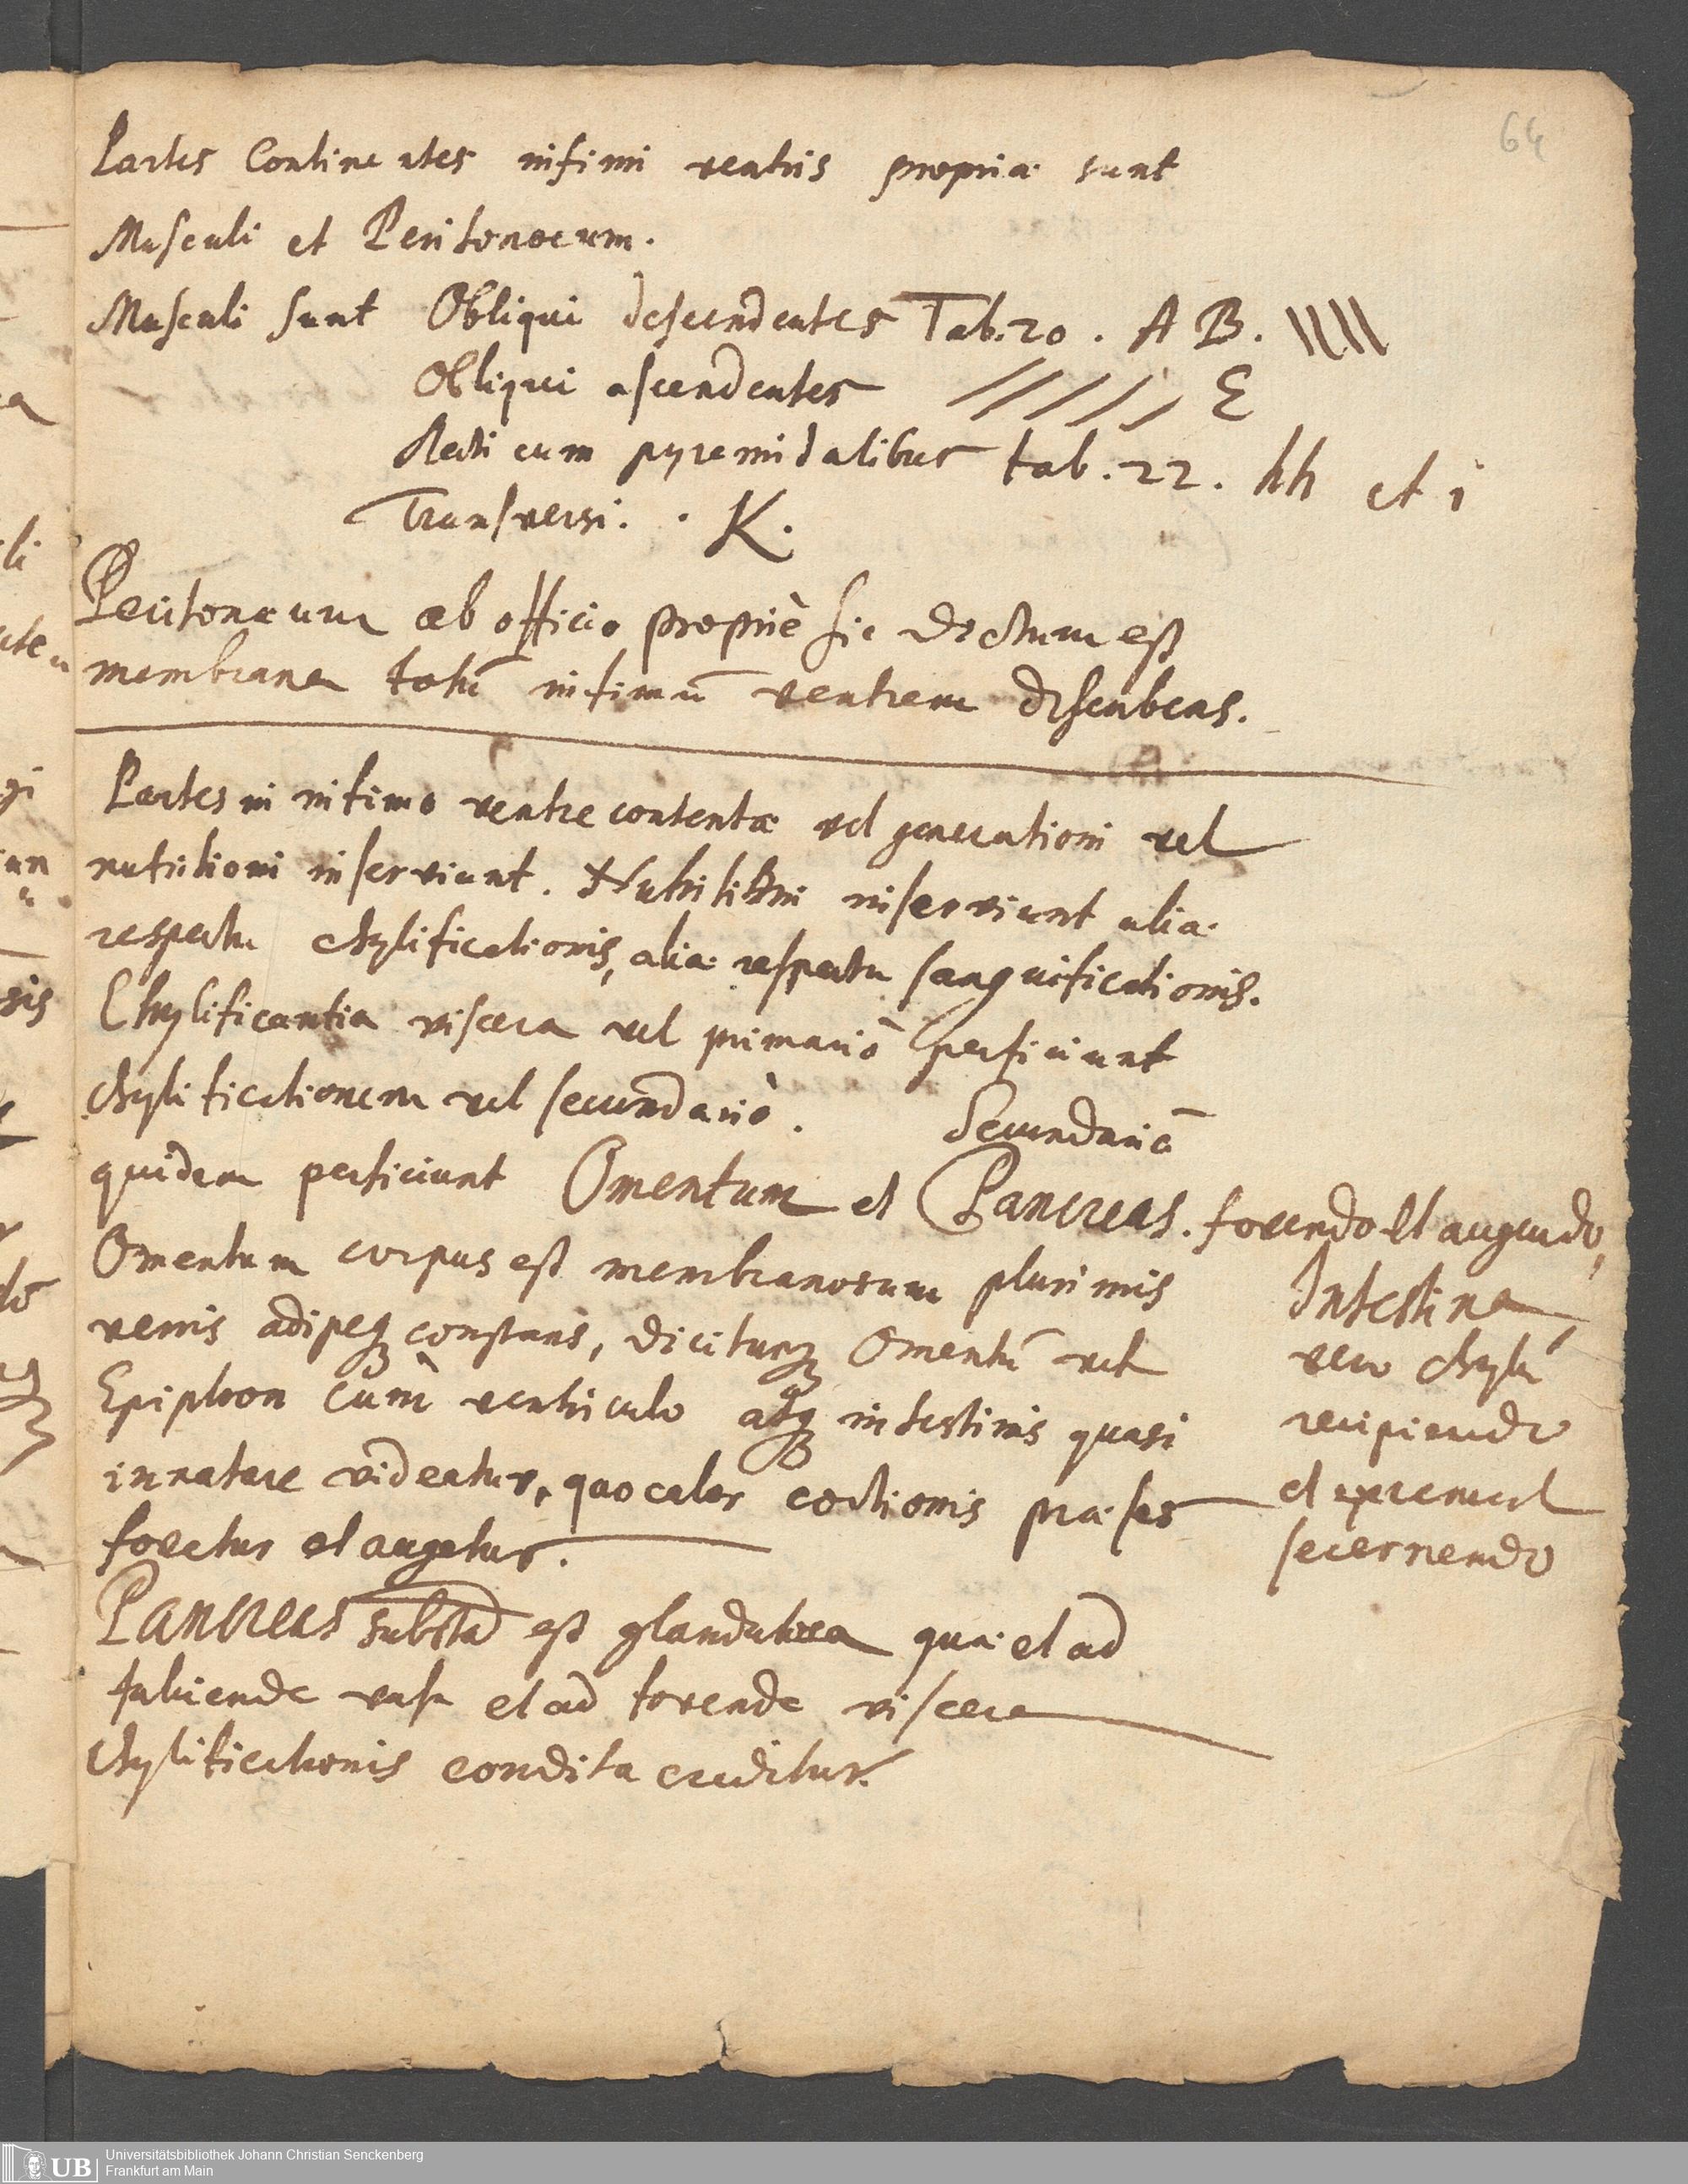 64
Partes Continentes infimi ventris propriæ sunt
Musculi et Peritonoeum.
Musculi sunt Obliqui descendentes Tab. 20. A B. \\\\\
Obliqui ascendentes ///// E
Recti cum pyramidalibus tab. 22. hh et i
Transversi. . K.
Peritonæum ab officio propriè sic dictum est
membrana totū infimū ventrem descubens.
Partes in infimo ventre contentæ vel generationi vel
nutritioni inserviunt. Nutritioni inserviunt aliæ
respectu chylificationis, aliæ respectu sanguificationis.
Chylificantia viscera vel primariò perficiunt
chylificationem vel secundariò. Secundariò
quidem perficiunt Omentum et Pancreas. fovendo et augendo,
Omentum corpus est membranosum plurimis
venis adipeq; constans, diciturq; Omentū vel
Epiploon cum ventriculo atq; intestinis quasi
innatare videatur, quo calor coctionis præses
fovetur et augetur.
Intestina
vero chylū
recipiendo
et
secernendo
Pancreas substā est glandulosa quæ et ad
fulcienda vasa et ad fovenda viscera
chylificationis condita creditur.
Universitätsbibliothek Johann Christian Senckenberg
Frankfurt am Main
UB